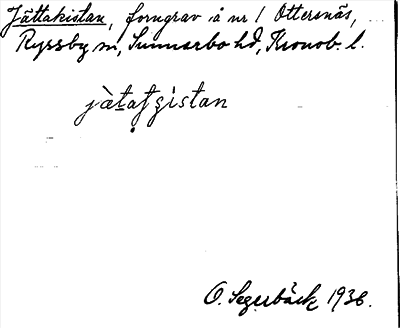 Jättakistan, forngrav å nr 1 Ottersnäs,
Ryssby sn, Sunnerbo hd, Kronob. l.
O. Segerbäck 1936.